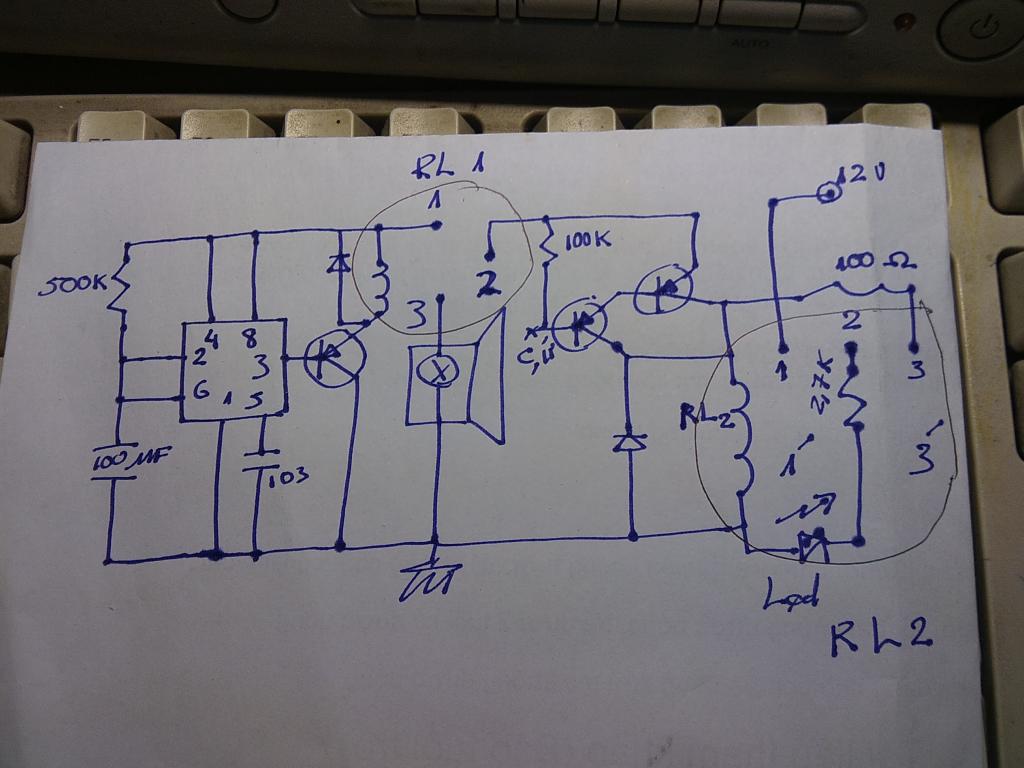 AUTO
RL 1
1
12V
500K
100K
100 Ω
2
3
4 8
2 3
6 1 5
X
C,Ü
2
1
3
2,7K
RL2
100 MF
103
1
3
Led
RL2